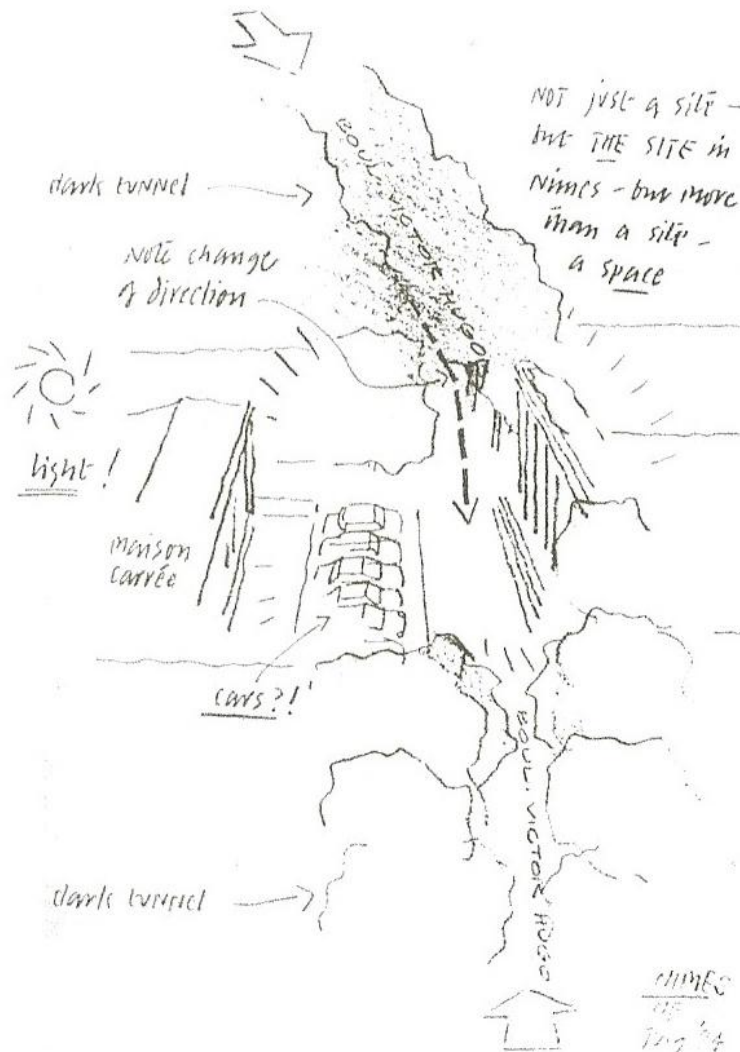 NOT just a site -
but THE SITE in
Nimes - but more
than a site -
a space
BOUL. VICTOR HUGO
dark tunnel
Note change
of direction
light!
maison
carrée
cars?!
BOUL. VICTOR HUGO
dark tunnel
NIMES